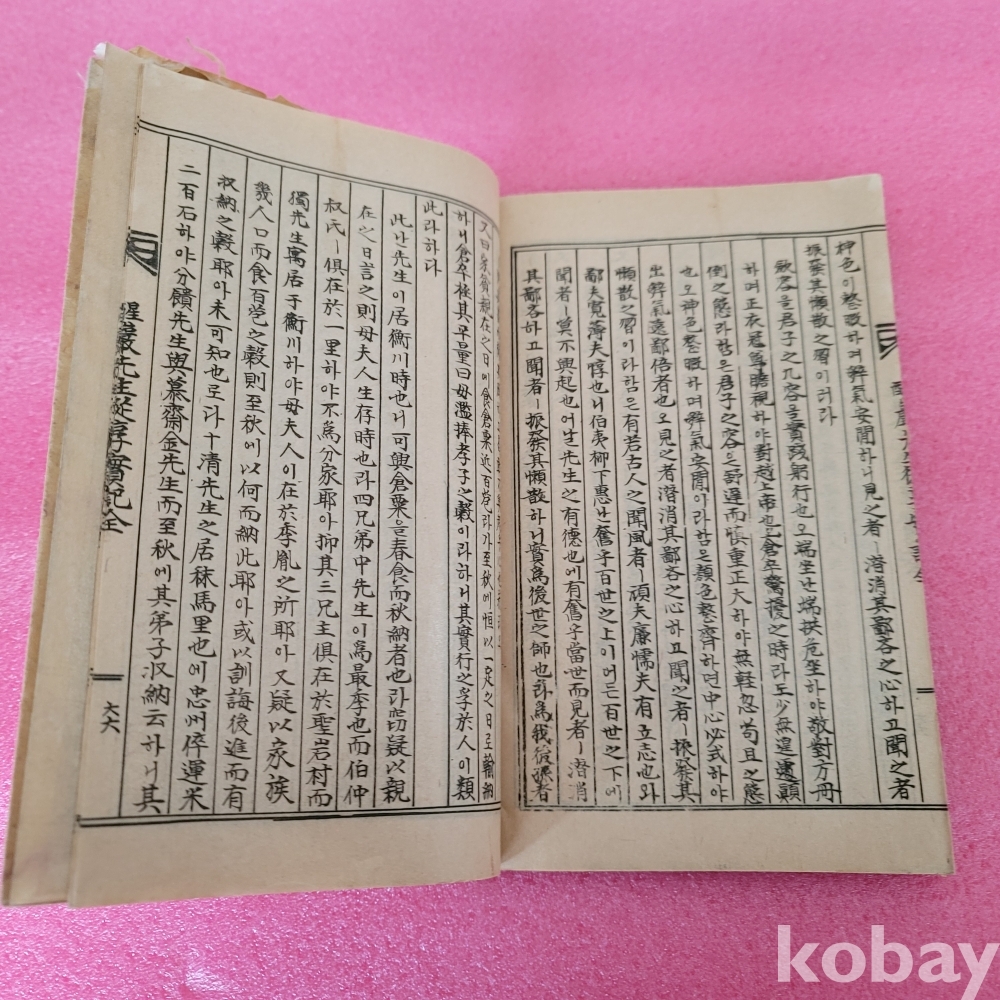 神色이整暇하며辭氣安閒하니見之者ㅣ潛消其鄙吝之心하고聞之者
振發其懶散之習이러라
斂容은君子之九容을實踐躬行也오端坐난端拱危坐하야敬對方冊
하며正衣冠尊瞻視하야對越上帝也오倉卒驚擾之時라도少無遑遽顚
倒之態라함은君子之容은舒遲而愼重正大하야無輕忽苟且之態
也오神色整暇하며辭氣安閒아라함은顔色整齊하며中心必式하야
出辭氣遠鄙倍者也오見之者潛消其鄙吝之心하고聞之者ㅣ振發其
懶散之習이라함은有若古人之聞風者ㅣ頑夫廉懦夫有立志也와
鄙夫寬薄夫惇也니伯夷柳下惠난奮乎百世之上이어든百世之下에
聞者ㅣ莫不興起也어니先生之有德也에有奮乎當世而見者ㅣ潛消
其鄙吝하고聞者ㅣ振發其懶散하니實爲後世之師也라爲我後孫者
又曰家貧親在之日에食倉粟近百苞라가至秋에恒以一定之日로輸納
하니倉卒控其平量曰毋濫捧孝子之穀이라하니其實行之孚於人이類
此라하다
此난先生이居衡川時也니可與倉粟은春食而秋納者也라窃疑以親
在之日言之則母夫人生存時也라四兄弟中先生이爲最季也而伯仲
叔氏ㅣ俱在於一里하야不爲分家耶아抑其三兄主俱在於聖岩村而
獨先生寓居于衡川하야母夫人이在於季胤之所耶아又疑以家族
幾人口而食百苞之穀則至秋에以何而納此耶아或以訓誨後進而有
收納之穀耶아未可知也로다十淸先生之居秣馬里也에忠州倅運米
二百石하야分饋先生與慕齋金先生而至秋에其弟子收納云하니其
醒巖先生從享實記全
六六